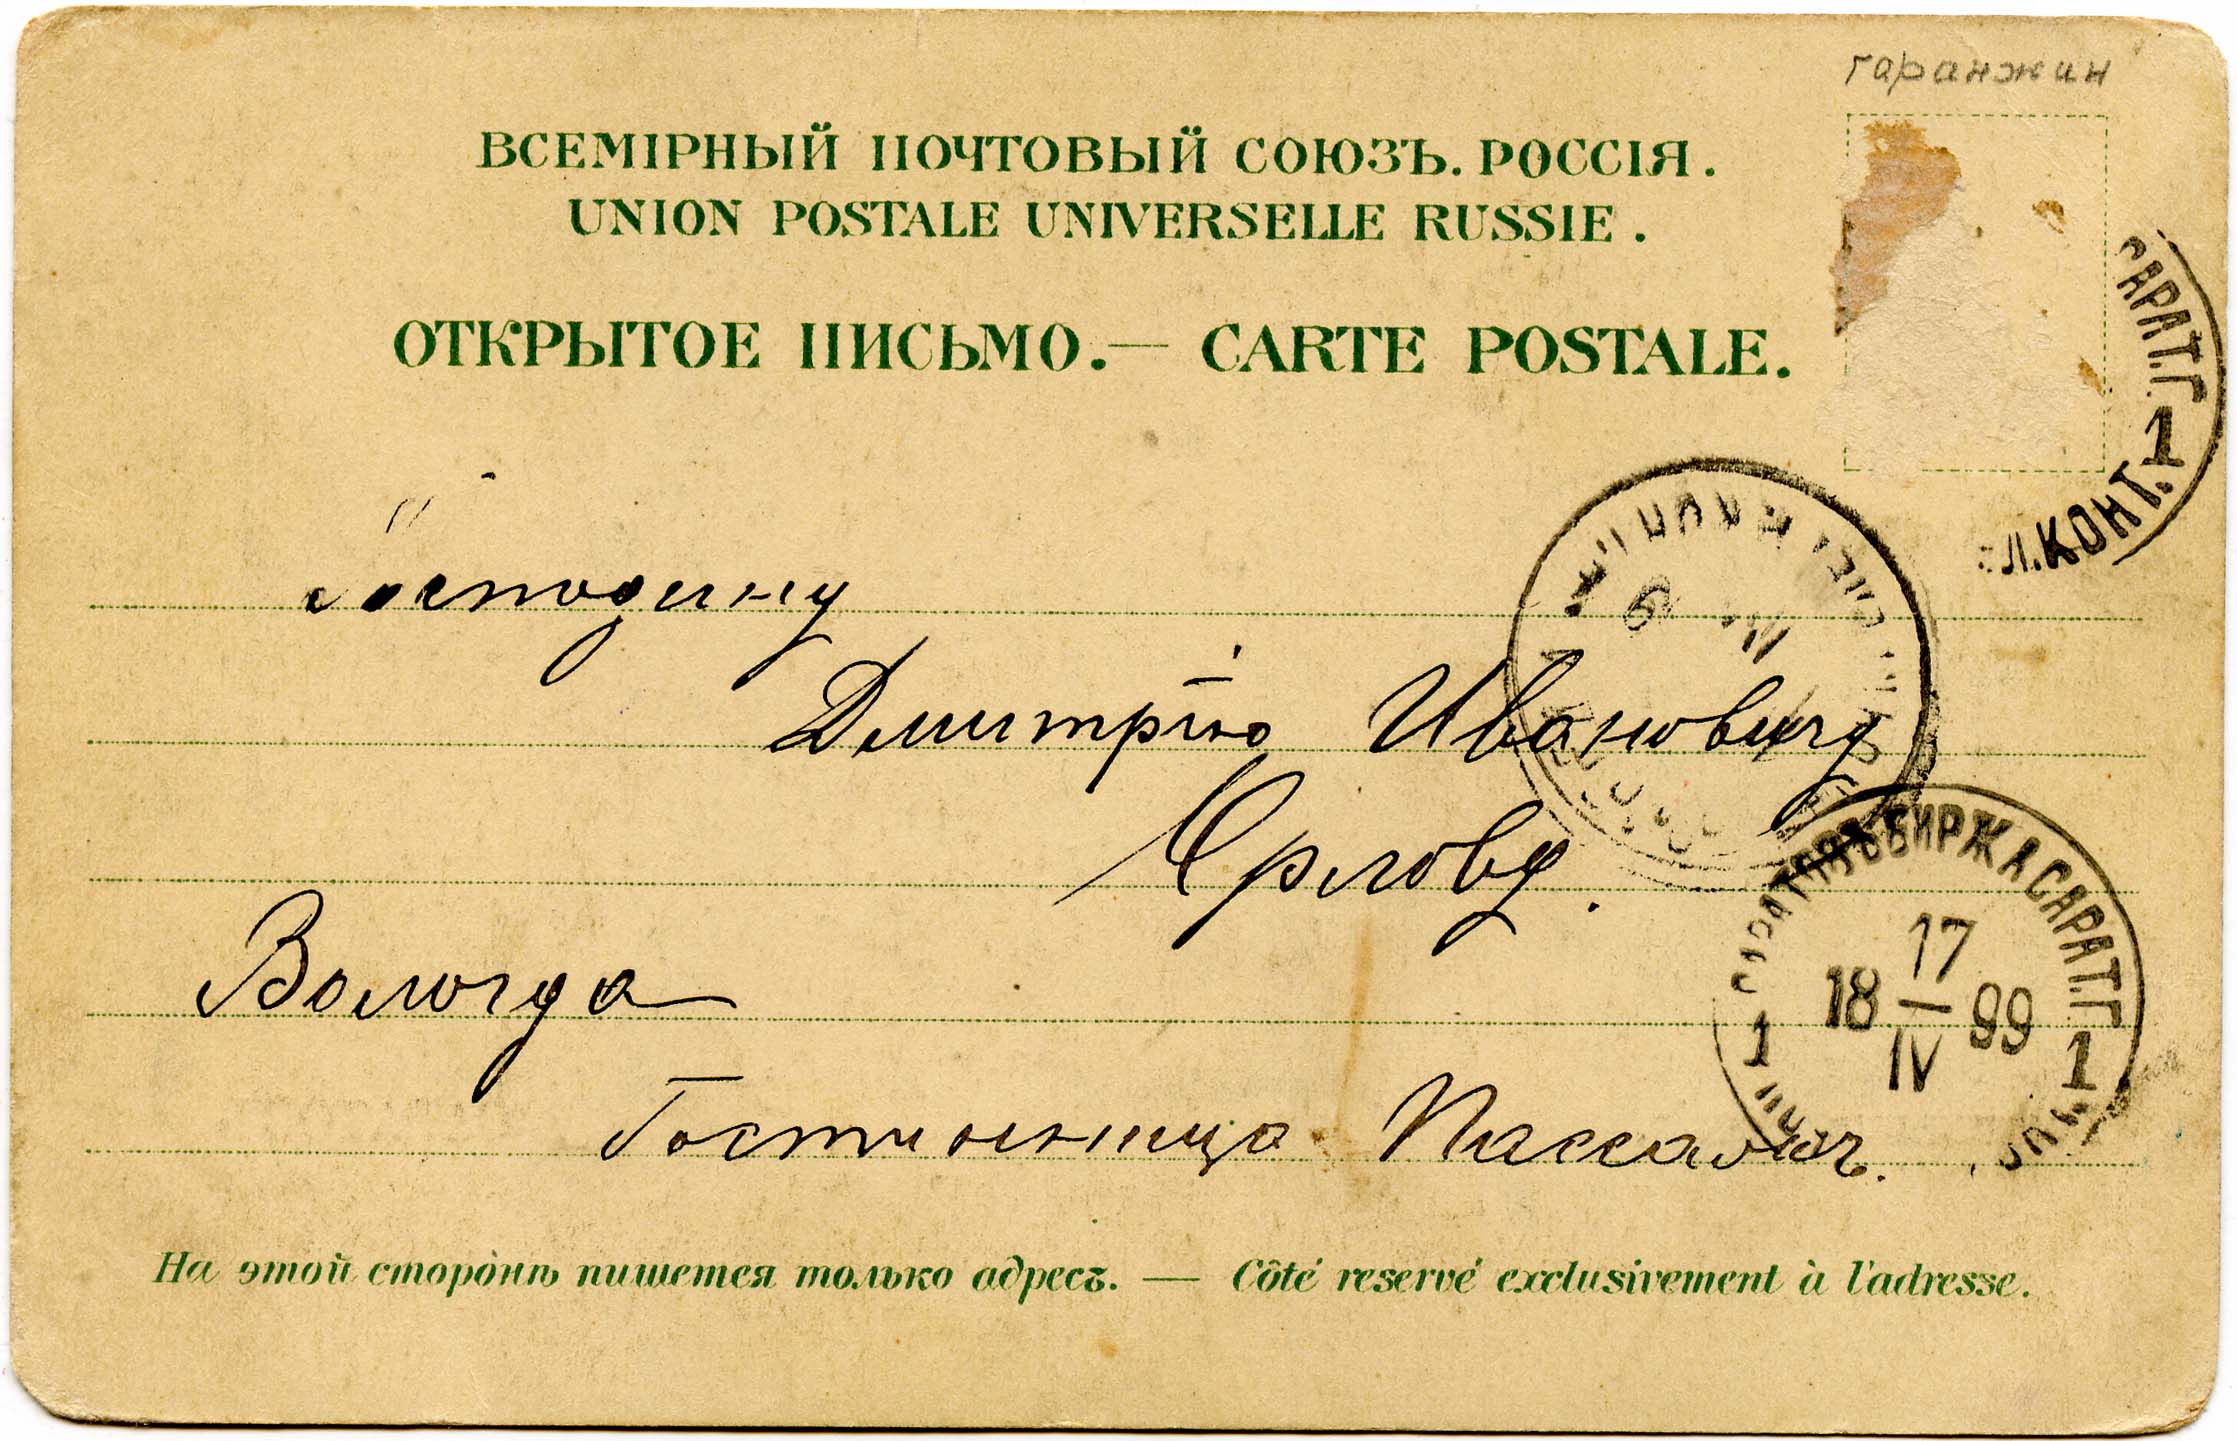 гаранжин
ВСЕМІРНЫЙ ПОЧТОВЫЙ СОЮЗЪ. РОССІЯ.
UNION POSTALE UNIVERSELLE RUSSIE.
ОТКРЫТОЕ ПИСЬМО.— CARTE POSTALE.
САРАТ.Г. 1
ЛЛ.КОНТ.
Господину
Дмитрію Ивановичу
Орлову.
САРАТОВЪ БИРЖА САРАТ.Г.
17
18 — 99
IV
1 1
Вологда
Гостинница Пассажъ.
На этой сторонѣ пишется только адресъ. — Côté reservé exclusivement à l'adresse.